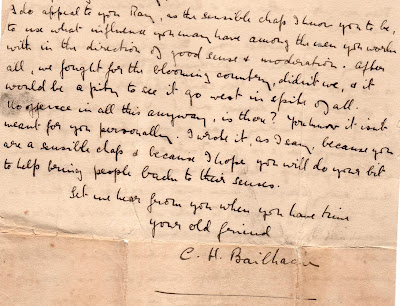 I do appeal to you Ray, as the sensible chap I know you to be,
to use what influence you may have among the men you work
with in the direction of good sense & moderation. After
all, we fought for the blooming country, didn't we, & it
would be a pity to see it go west in spite of all.
No offence in all this anyway, is there? You know it isn't
meant for you personally. I wrote it, as I say, because you
are a sensible chap & because I hope you will do your bit
to help bring people back to their senses.
Let me hear from you when you have time
your old friend
C. H. Bailhache